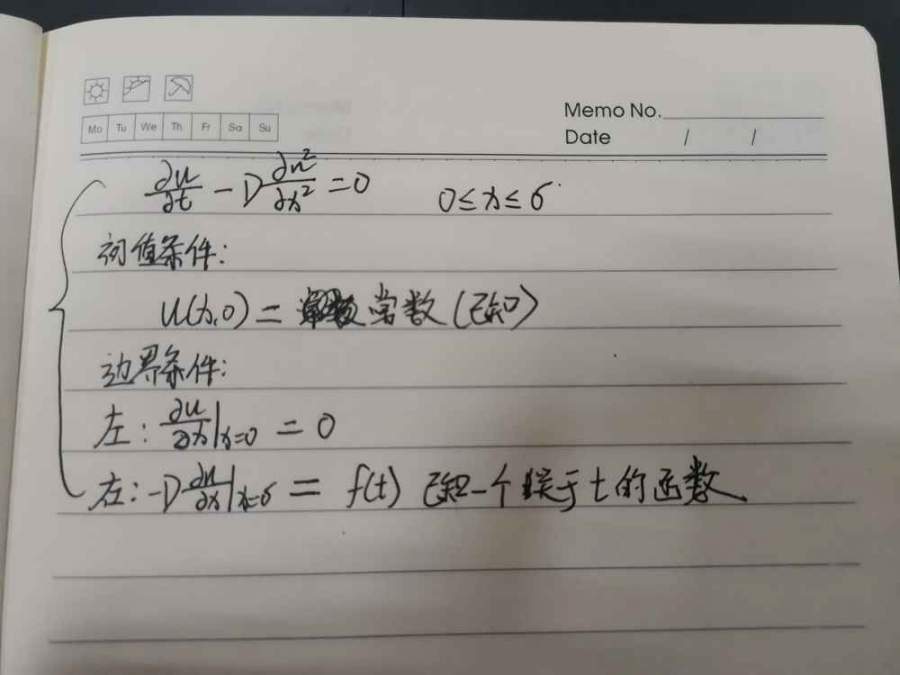 Memo No.
Mo Tu We Th Fr Sa Su
Date / /
∂u/∂t - D ∂u²/∂x² = 0 0≤x≤δ
初值条件:
u(x,0) = 常数(已知)
边界条件:
左: ∂u/∂x|x=0 = 0
右: -D ∂u/∂x|x=δ = f(t) 已知一个关于t的函数